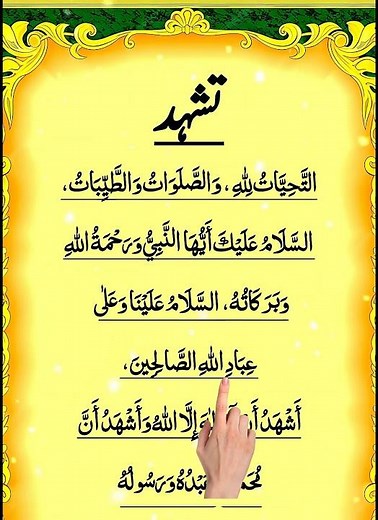 تشہد
التَّحِيَّاتُ لِلّٰهِ، وَالصَّلَوَاتُ وَالطَّيِّبَاتُ،
السَّلَامُ عَلَيْكَ أَيُّهَا النَّبِيُّ وَرَحْمَةُ اللهِ
وَبَرَكَاتُهُ، السَّلَامُ عَلَيْنَا وَعَلٰى
عِبَادِ اللهِ الصَّالِحِينَ،
أَشْهَدُ إِلَّا اللهُ وَأَشْهَدُ أَنَّ
وَرَسُولُهُ